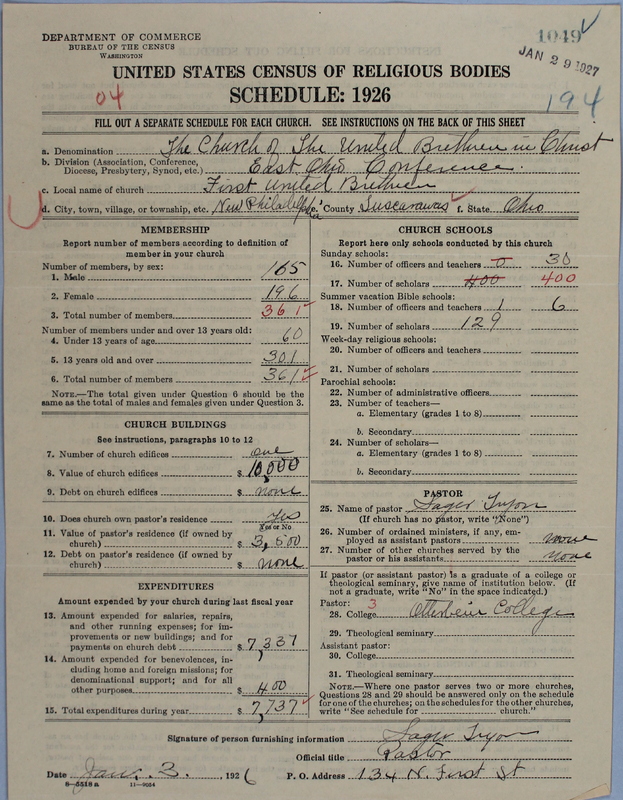 DEPARTMENT OF COMMERCE
BUREAU OF THE CENSUS
WASHINGTON
1049
JAN 29 1927
UNITED STATES CENSUS OF RELIGIOUS BODIES
04
SCHEDULE: 1926
194
FILL OUT A SEPARATE SCHEDULE FOR EACH CHURCH. SEE INSTRUCTIONS ON THE BACK OF THIS SHEET
a. Denomination The Church of The United Brethren in Christ
b. Division (Association, Conference, Diocese, Presbytery, Synod, etc.) East Ohio Conference
c. Local name of church First United Brethren
d. City, town, village, or township, etc. New Philadelphia e. County Tuscarawas f. State Ohio
MEMBERSHIP
Report number of members according to definition of
member in your church
Number of members, by sex:
1. Male 165
2. Female 196
3. Total number of members 361
Number of members under and over 13 years old:
4. Under 13 years of age 60
5. 13 years old and over 301
6. Total number of members 361
NOTE.—The total given under Question 6 should be
same as the total of males and females given under Question 3.
CHURCH BUILDINGS
See instructions, paragraphs 10 to 12
7. Number of church edifices one
8. Value of church edifices $ 10,000
9. Debt on church edifices $ none
10. Does church own pastor's residence yes
Yes or No
11. Value of pastor's residence (if owned by
church) $ 3,500
12. Debt on pastor's residence (if owned by
church) $ none
EXPENDITURES
Amount expended by your church during last fiscal year
13. Amount expended for salaries, repairs,
and other running expenses; for im-
provements or new buildings; and for
payments on church debt $ 7,337
14. Amount expended for benevolences, in-
cluding home and foreign missions; for
denominational support; and for all
other purposes $ 400
15. Total expenditures during year $ 7,737
CHURCH SCHOOLS
Report here only schools conducted by this church
Sunday schools:
16. Number of officers and teachers 0 30
17. Number of scholars 400 400
Summer vacation Bible schools:
18. Number of officers and teachers 1 6
19. Number of scholars 129
Week-day religious schools:
20. Number of officers and teachers
21. Number of scholars
Parochial schools:
22. Number of administrative officers
23. Number of teachers—
a. Elementary (grades 1 to 8)
b. Secondary
24. Number of scholars—
a. Elementary (grades 1 to 8)
b. Secondary
PASTOR
25. Name of pastor Sager Tryon
(If church has no pastor, write "None")
26. Number of ordained ministers, if any, em-
ployed as assistant pastors none
27. Number of other churches served by the
pastor or his assistants none
If pastor (or assistant pastor) is a graduate of a college or
theological seminary, give name of institution below. (If
not a graduate, write "No" in the space indicated.)
Pastor: 3
28. College Otterbein College
29. Theological seminary
Assistant pastor:
30. College
31. Theological seminary
NOTE.—Where one pastor serves two or more churches,
Questions 28 and 29 should be answered only on the schedule
for one of the churches; on the schedules for the other churches,
write "See schedule for church."
Signature of person furnishing information Sager Tryon
Official title Pastor
Date Jan. 3, 1926 P. O. Address 134 N. First St
8—5518 a 11—9024